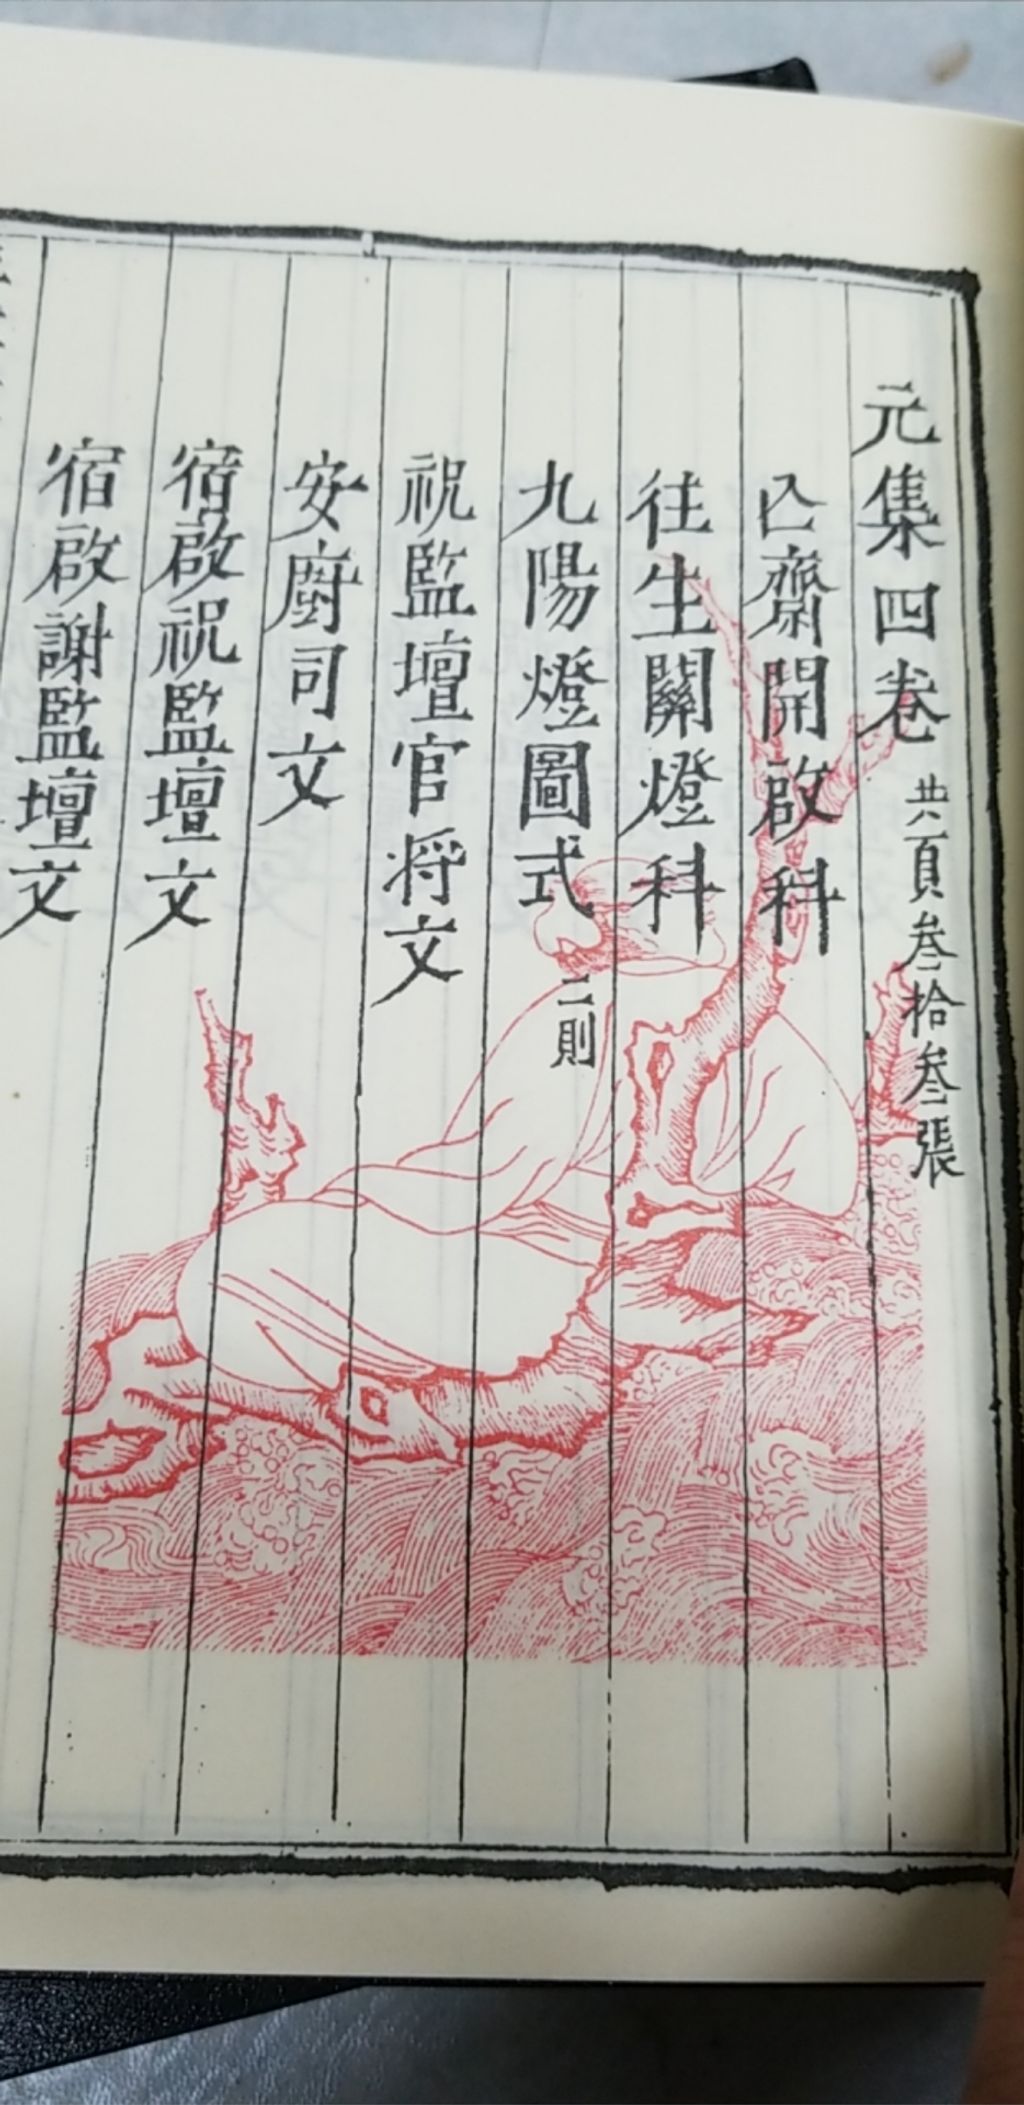 元集四卷 共頁叁拾叁張
亾齋開啟科
往生關燈科
九陽燈圖式 二則
祝監壇官将文
安廚司文
宿啟祝監壇文
宿啟謝監壇文